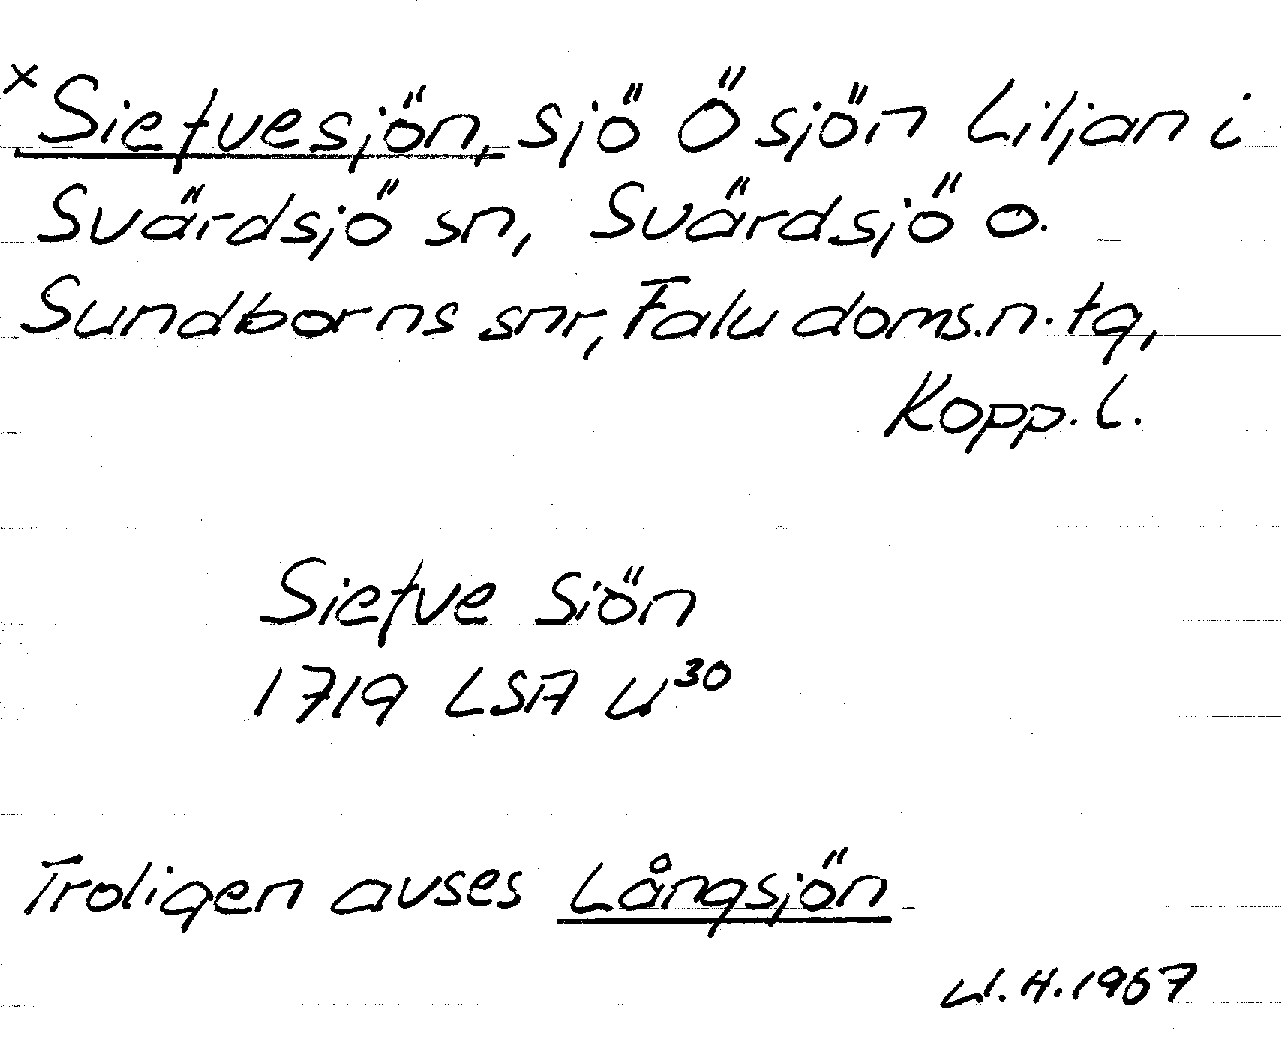 x Siefvesjön, sjö Ö sjön Liljan i
Svärdsjö sn, Svärdsjö o.
Sundborns snr, Falu doms.n. tg,
Kopp. l.
Siefve Siön
1719 LSA U³⁰
Troligen avses Långsjön
U.H. 1967